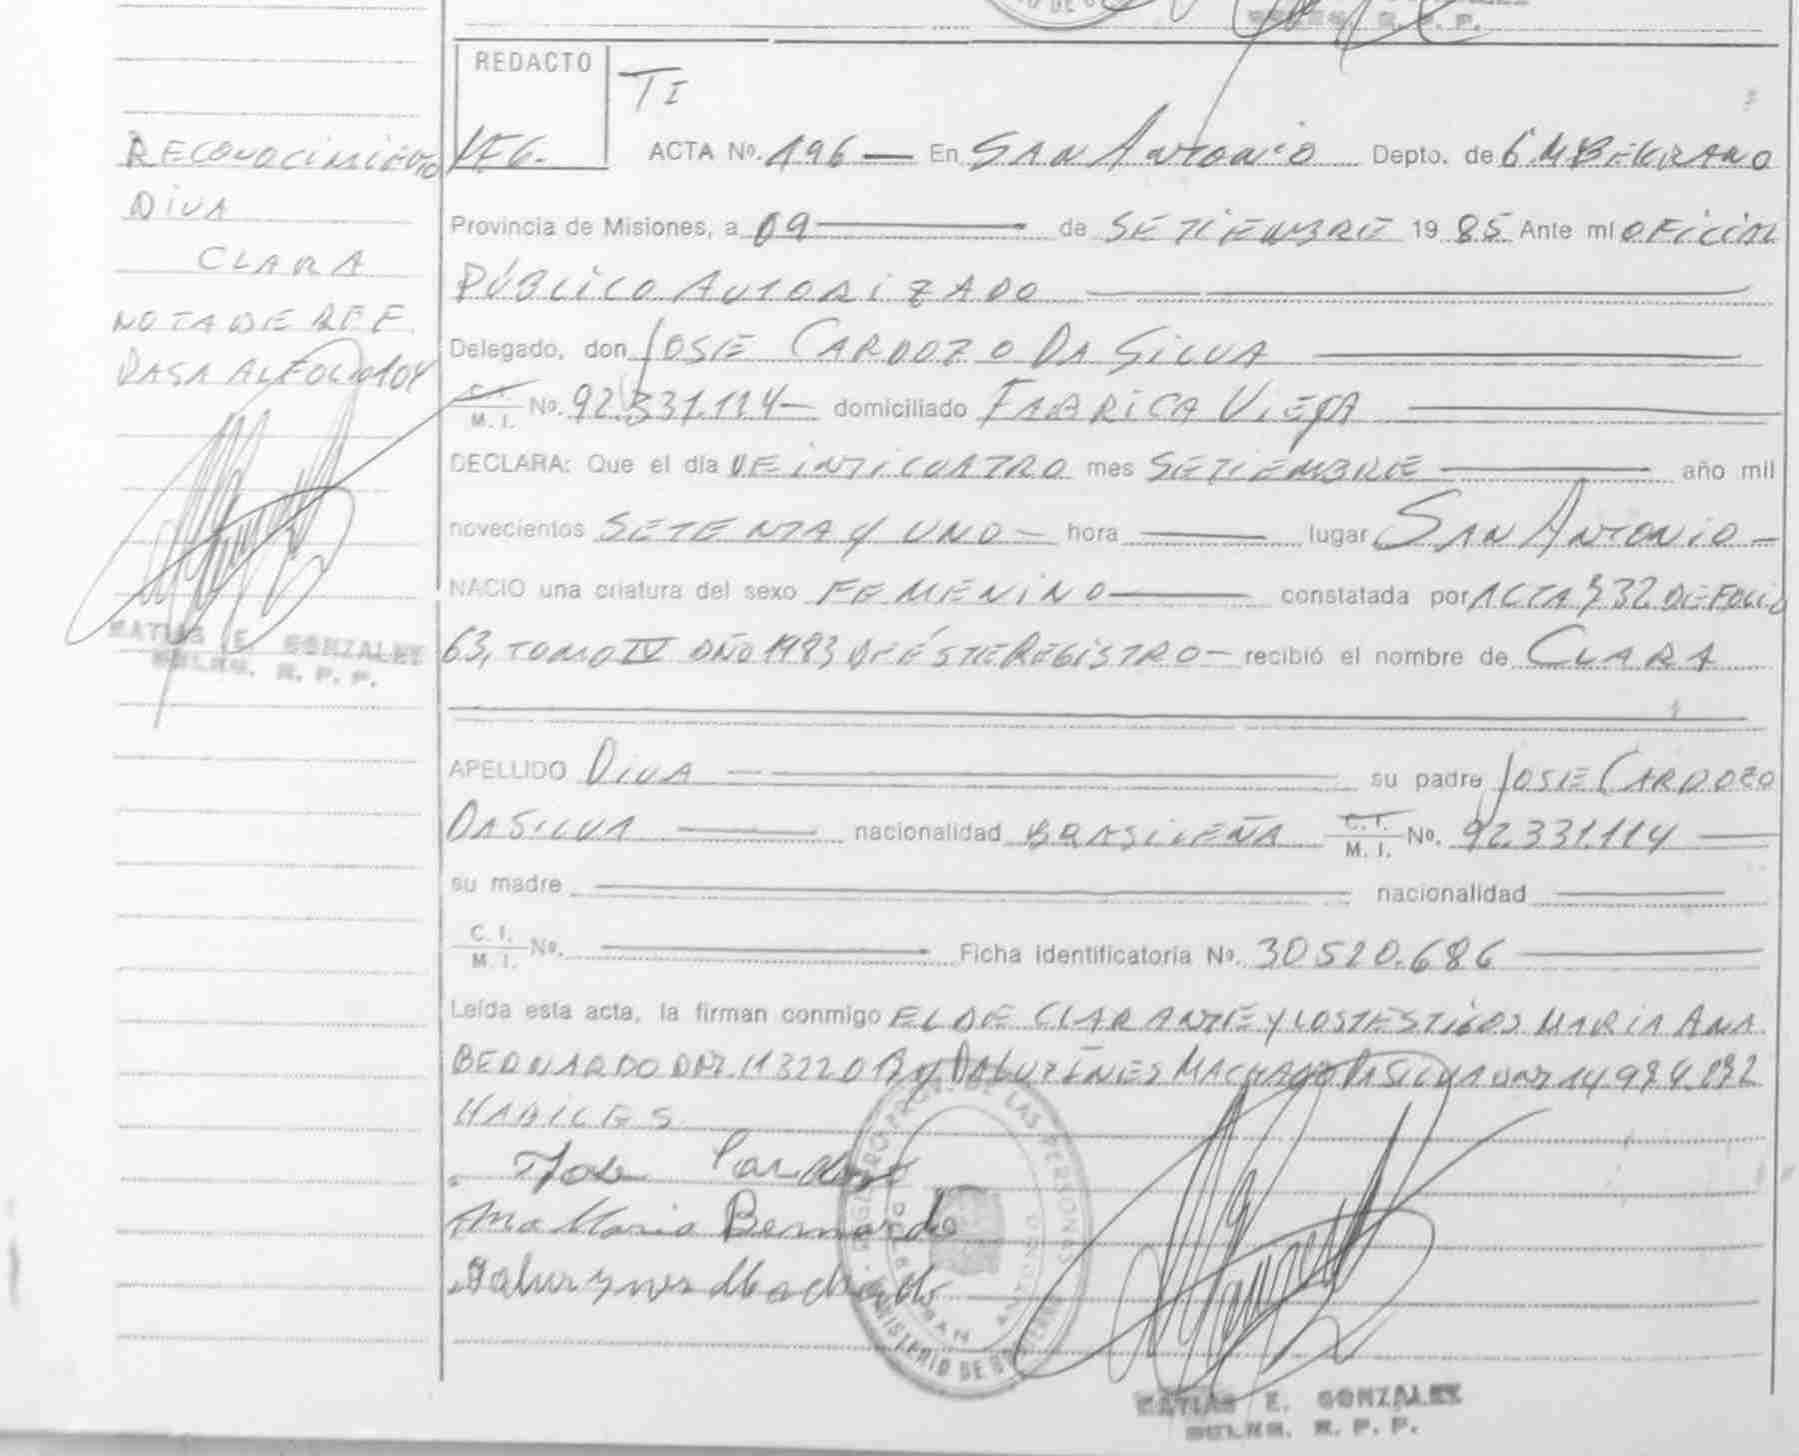 REDACTO
TI
RECONOCIMIENTO
DIVA
CLARA
NOTA DE REF.
PASA AL FOLIO 104
MATIAS E. GONZALEZ
R. P. P.
ACTA Nº. 196 — En SAN ANTONIO Depto. de G. M. BELGRANO
Provincia de Misiones, a 09 — de SETIEMBRE 1985 Ante mi OFICIAL
PÚBLICO AUTORIZADO —
Delegado, don JOSE CARDOZO DA SILVA —
C. I. M. I. Nº. 92.331.114 — domiciliado FABRICA VIEJA —
DECLARA: Que el día VEINTICUATRO mes SETIEMBRE — año mil
novecientos SETENTA Y UNO — hora — lugar SAN ANTONIO —
NACIO una criatura del sexo FEMENINO — constatada por ACTA 332 DE FOLIO
63, TOMO IV AÑO 1983 DE ÉSTE REGISTRO — recibió el nombre de CLARA
APELLIDO DIVA — su padre JOSE CARDOZO
DA SILVA — nacionalidad BRASILEÑA C. I. M. I. Nº. 92.331.114 —
su madre — nacionalidad —
C. I. M. I. Nº. — Ficha identificatoria Nº. 30520.686 —
Leída esta acta, la firman conmigo EL DECLARANTE Y LOS TESTIGOS MARIA ANA
BERNARDO DNI. Y INES MACHADO DA SILVA DNI
HABILES
Jose Cardozo
Ana Maria Bernardo
Machado
REGISTRO PROV. DE LAS PERSONAS
SAN ANTONIO
MINISTERIO DE GOBIERNO
MATIAS E. GONZALEZ
R. P. P.
R. P. P.